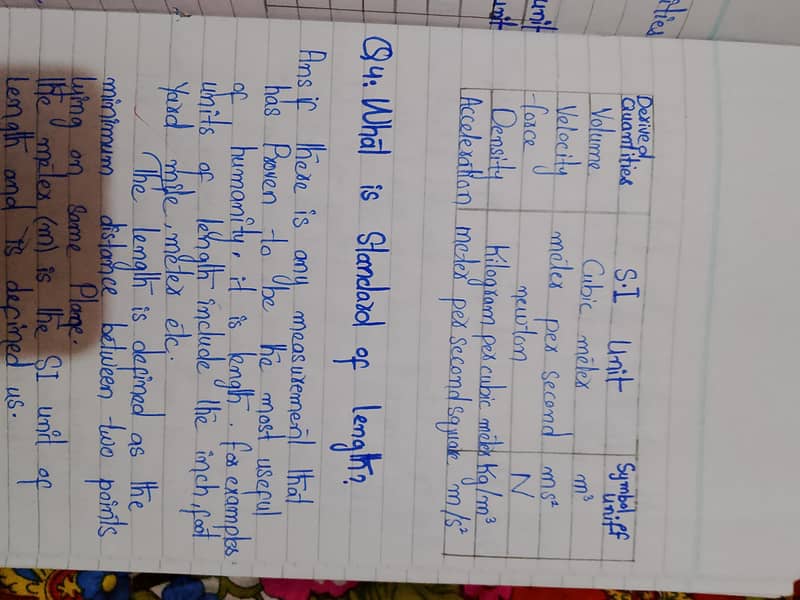 ities
unit
unit
Derived Quantities S.I Unit Symbol of unit
Volume Cubic meter m³
Velocity meter per second ms²
force newton N
Density kilogram per cubic meter Kg/m³
Acceleration meter per second square m/s²
Q4. What is Standard of length?
Ans if there is any measurement that
has Proven to be the most useful
of humanity, it is length. for examples.
units of length include the inch, foot
Yard mile, meter etc.
The length is defined as the
minimum distance between two points
lying on same Plane.
the meter (m) is the SI unit of
length and is defined us.